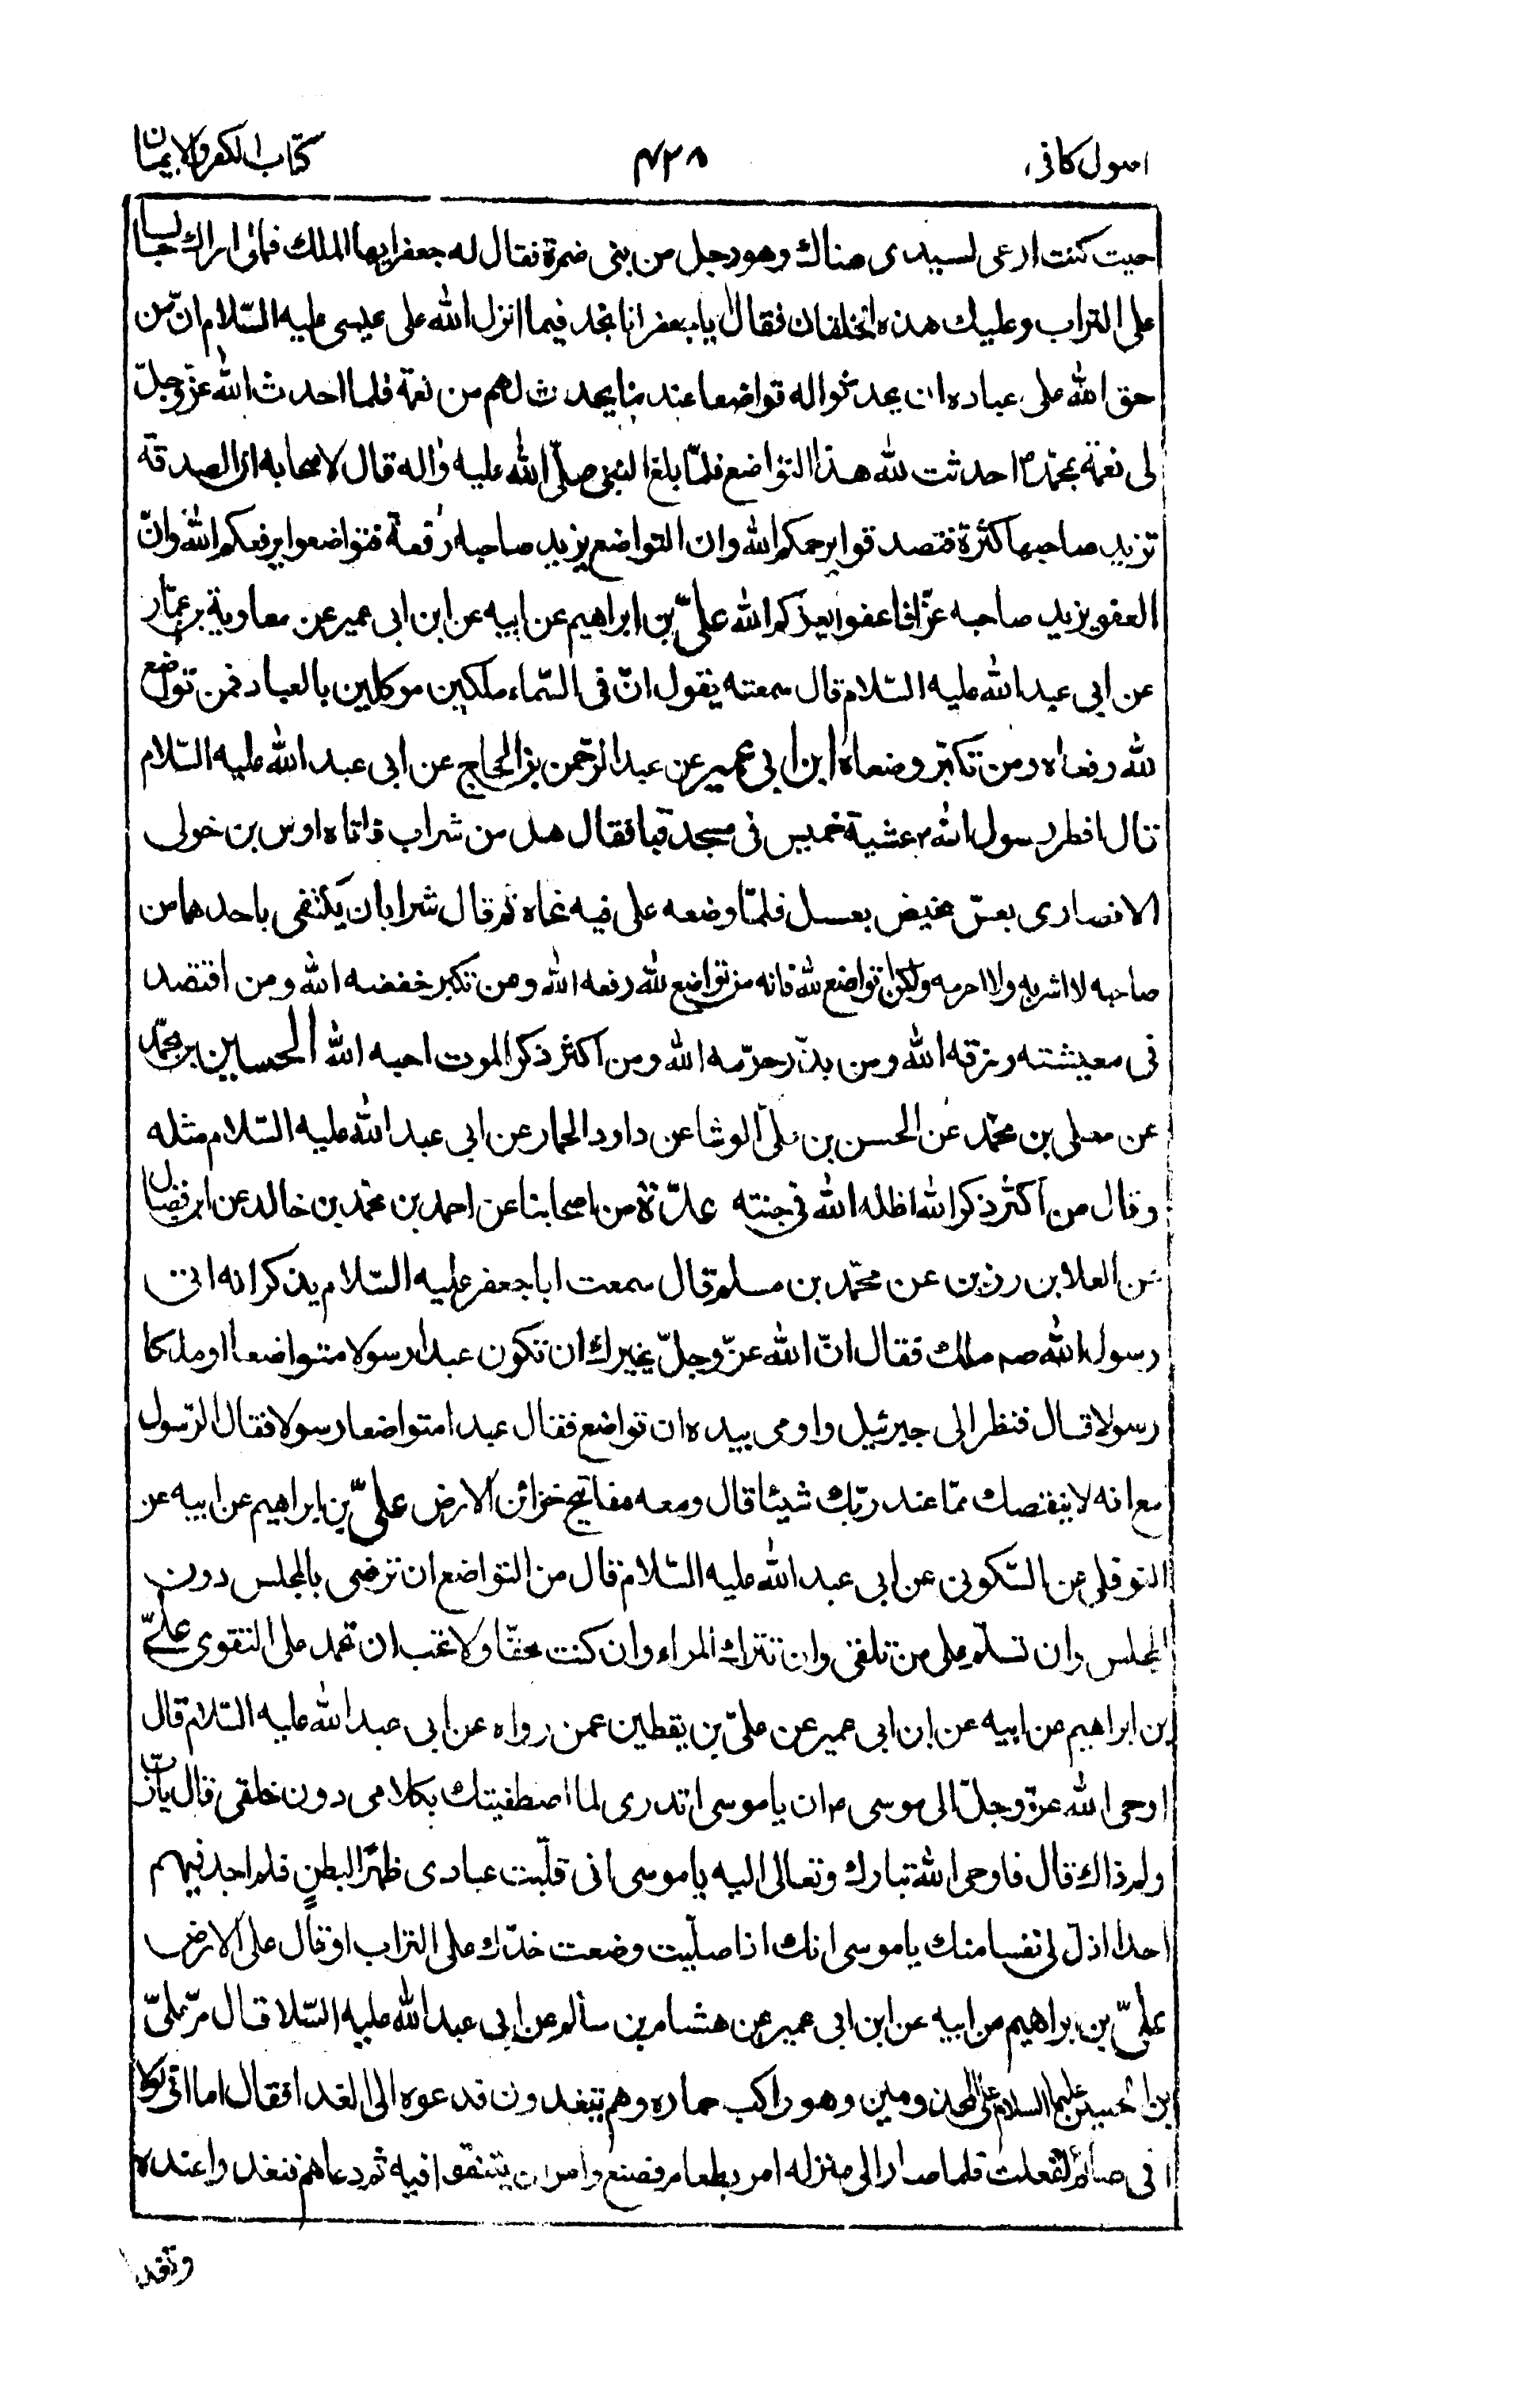 اصول كافى
٤٣٨
كتاب الكفر والايمان
حيث كنت ارعى لسيدى هناك وهو رجل من بنى ضمرة فقال له جعفر ايها الملك فمالى اراك جالسا
على التراب وعليك هذه الخلقان فقال يا جعفر انا نجد فيما انزل الله على عيسى عليه السّلام انّ من
حق الله على عباده ان يحدثوا له تواضعا عند ما يحدث لهم من نعمة فلما احدث الله عزّ وجلّ
لى نعمة بمحمّد م احدثت لله هذا التواضع فلمّا بلغ النبى صلّى الله عليه واله قال لاصحابه ان الصدقة
تزيد صاحبها كثرة فتصدقوا يرحمكم الله وان التواضع يزيد صاحبه رفعة فتواضعوا يرفعكم الله وانّ
العفو يزيد صاحبه عزّا فاعفوا يعزكم الله علىّ بن ابراهيم عن ابيه عن ابن ابى عمير عن معاوية بن عمّار
عن ابى عبد الله عليه السّلام قال سمعته يقول انّ فى السّماء ملكين موكلين بالعباد فمن تواضع
لله رفعاه ومن تكبّر وضعاه ابن ابى عمير عن عبد الرّحمن بن الحجاج عن ابى عبد الله عليه السّلام
قال افطر رسول الله م عشية خميس فى مسجد قبا فقال هل من شراب فاتاه اوس بن خولى
الانصارى بعسّ مخيض بعسل فلمّا وضعه على فيه نحاه ثم قال شرابان يكتفى باحدهما من
صاحبه لا اشربه ولا احرمه ولكن تواضع لله فانه من تواضع لله رفعه الله ومن تكبر خفضه الله ومن اقتصد
فى معيشته رزقه الله ومن بذّر حرّمه الله ومن اكثر ذكر الموت احبه الله الحسين بن محمّد
عن معلى بن محمّد عن الحسن بن علىّ الوشا عن داود الحمار عن ابى عبد الله عليه السّلام مثله
وقال من اكثر ذكر الله اظله الله فى جنته عدّة من اصحابنا عن احمد بن محمد بن خالد عن ابن فضال
عن العلا بن رزين عن محمّد بن مسلم قال سمعت ابا جعفر عليه السّلام يذكر انه اتى
رسول الله صم ملك فقال انّ الله عزّ وجلّ يخيرك ان تكون عبدا رسولا متواضعا او ملكا
رسولا قال فنظر الى جبرئيل واومى بيده ان تواضع فقال عبدا متواضعا رسولا فقال الرّسول
مع انه لا ينقصك ممّا عند ربّك شيئا قال ومعه مفاتيح خزائن الارض علىّ بن ابراهيم عن ابيه عن
النوفلى عن السّكونى عن ابى عبد الله عليه السّلام قال من التواضع ان ترضى بالمجلس دون
المجلس وان تسلّم على من تلقى وان تترك المراء وان كنت محقّا ولا تحب ان تحمد على التقوى علىّ
بن ابراهيم عن ابيه عن ابن ابى عمير عن علىّ بن يقطين عمن رواه عن ابى عبد الله عليه السّلام قال
اوحى الله عزّ وجلّ الى موسى م ان يا موسى اتدرى لما اصطفيتك بكلامى دون خلقى قال يا ربّ
ولم ذاك قال فاوحى الله تبارك وتعالى اليه يا موسى انى قلّبت عبادى ظهرًا لبطنٍ فلم اجد فيهم
احدا اذلّ لى نفسا منك يا موسى انك اذا صلّيت وضعت خدّك على التراب او قال على الارض
علىّ بن ابراهيم عن ابيه عن ابن ابى عمير عن هشام بن سالم عن ابى عبد الله عليه السّلا قال مرّ علىّ
بن الحسين عليهما السلام على المجذومين وهو راكب حماره وهم يتغدون فدعوه الى الغدا فقال اما انى لولا
انى صائم لفعلت فلما صار الى منزله امر بطعام فصنع وامر ان يتنوقوا فيه ثم دعاهم فتغدوا عنده
وتغدا